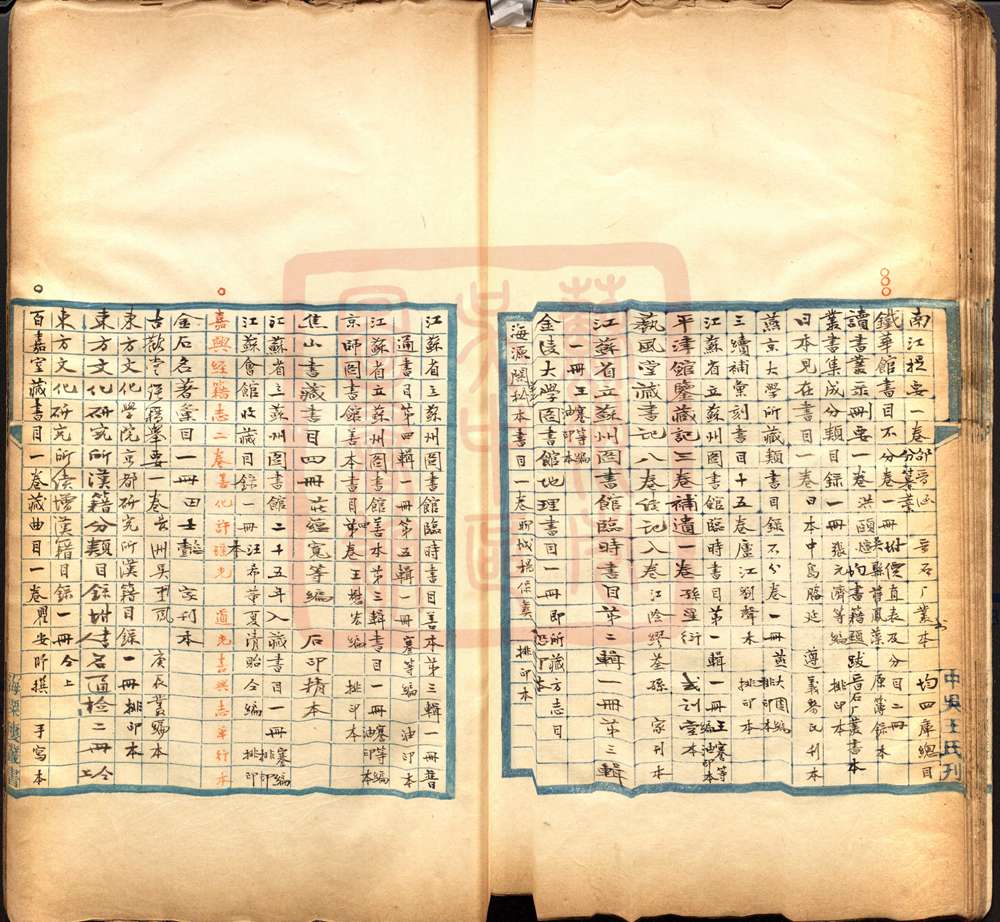 南江提要一卷 邵晉涵 晉石厂叢本 均四庫總目
鐵華館書目不分卷一冊 附價直表及分目二冊
讀書叢录刪要一卷 洪頤煊 均書籍題跋 晉石厂叢書本
叢書集成分類目錄一冊 張元濟等編 排印本
日本見在書目一卷 日本中島勝延 遵義黎氏刊本
燕京大學所藏類書目錄不分卷一冊 黄大固編 排印本
三續補彙刻書目十五卷 廬江劉聲木 排印本
江蘇省立蘇州圖書館臨時書目第一輯一冊 王謇等編 油印本
平津館鑒藏記三卷補遺一卷 孫星衍 式訓堂本
藝風堂藏書記八卷续记八卷 江陰繆荃孫 家刊本
江蘇省立蘇州圖書館臨時書目第二輯一冊第三輯
一冊 王謇等編 油印本
金陵大学圖書館地理書目一冊 即所藏方志目
海源閣秘本書目一卷 聊城楊保彝 排印本
江蘇省立蘇州圖書館臨時書目善本第三輯一冊普
通書目第四輯一冊第五輯一冊 謇等編 油印本
江蘇省立蘇州圖書館善本第三輯書目一冊 謇等編 油印本
京師圖書館善本書目四卷 王懋宏編 排印本
焦山書藏書目四冊 莊蘊寬等編 石印精本
江蘇省立蘇州圖書館二十五年入藏書目一冊 謇編 排印
江蘇會館收藏目錄一冊 汪希董夏清貽仝編 排印本
嘉興經籍志二卷 善化許瑶光 道光嘉興志单行本
金石名著彙目一冊 田士懿 家刊本
古歡堂經籍舉要一卷 吳翌鳳 庚辰叢編本
東方文化學院京都研究所漢籍目錄一冊 排印本
東方文化研究所漢籍分類目錄附人書名通檢二冊 仝上
東方文化研究所續增漢籍目錄一冊 仝上
百嘉室藏書目一卷藏曲目一卷 瞿安昕撰 手寫本